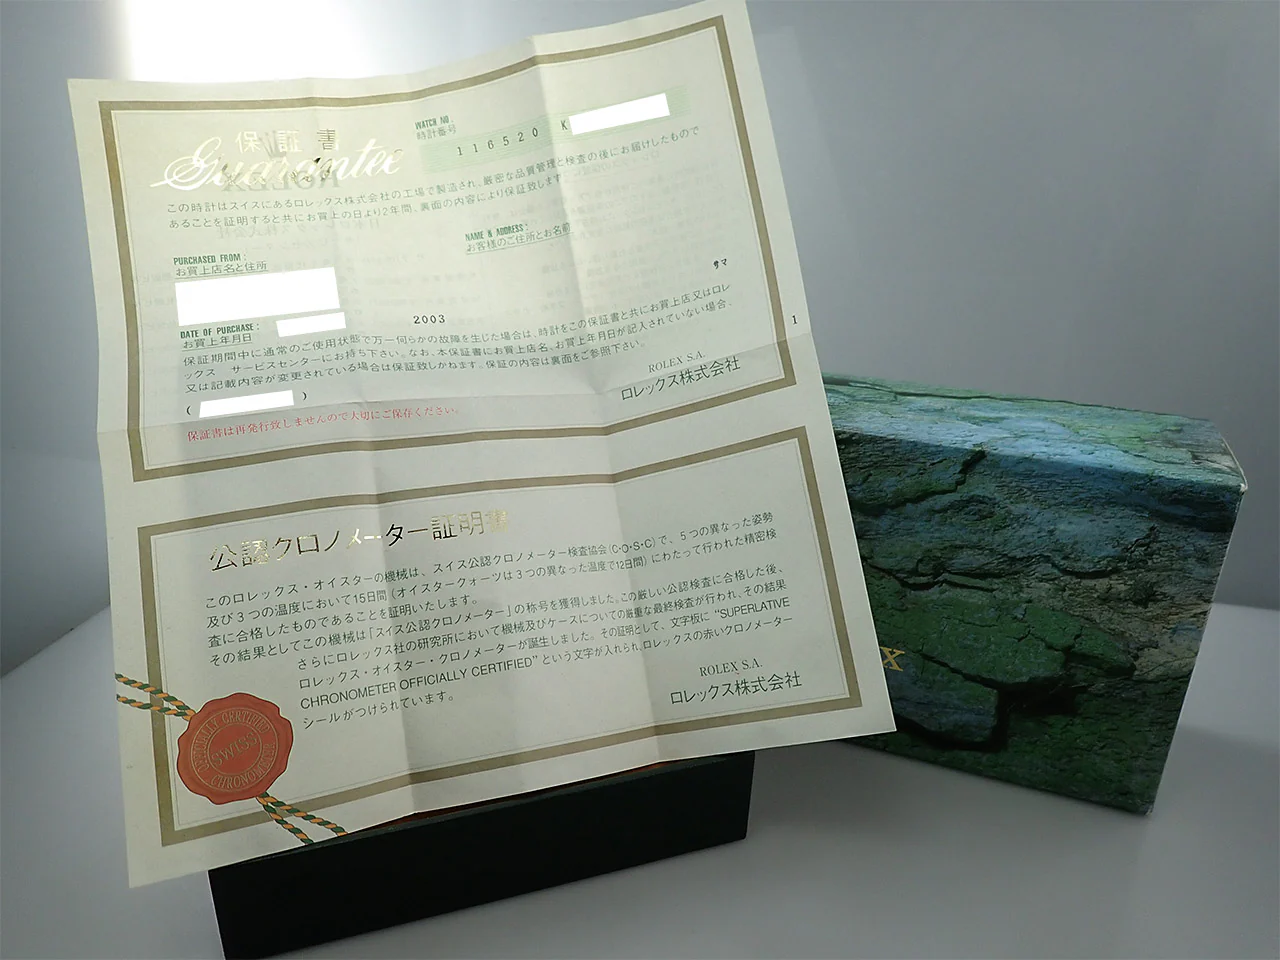 保証書
Guarantee
WATCH NO.:
時計番号
116520 K
この時計はスイスにあるロレックス株式会社の工場で製造され、厳密な品質管理と検査の後にお届けしたもので
あることを証明すると共にお買上の日より2年間、裏面の内容により保証致します。
PURCHASED FROM:
お買上店名と住所
NAME N ADDRESS:
お客様のご住所とお名前
サマ
DATE OF PURCHASE:
お買上年月日
2003
保証期間中に通常のご使用状態で万一何らかの故障を生じた場合は、時計をこの保証書と共にお買上店又はロレ
ックス サービスセンターにお持ち下さい。なお、本保証書にお買上店名、お買上年月日が記入されていない場合、
又は記載内容が変更されている場合は保証致しかねます。保証の内容は裏面をご参照下さい。
( )
ROLEX S.A.
ロレックス株式会社
保証書は再発行致しませんので大切にご保存ください。
1
公認クロノメーター証明書
このロレックス・オイスターの機械は、スイス公認クロノメーター検査協会(C・O・S・C)で、5つの異なった姿勢
及び3つの温度において15日間(オイスタークォーツは3つの異なった温度で12日間)にわたって行われた精密検
査に合格したものであることを証明いたします。
その結果としてこの機械は「スイス公認クロノメーター」の称号を獲得しました。この厳しい公認検査に合格した後、
さらにロレックス社の研究所において機械及びケースについての厳重な最終検査が行われ、その結果
ロレックス・オイスター・クロノメーターが誕生しました。その証明として、文字板に "SUPERLATIVE
CHRONOMETER OFFICIALLY CERTIFIED" という文字が入れられ、ロレックスの赤いクロノメーター
シールがつけられています。
ROLEX S.A.
ロレックス株式会社
OFFICIALLY CERTIFIED
SWISS
CHRONOMETER
X